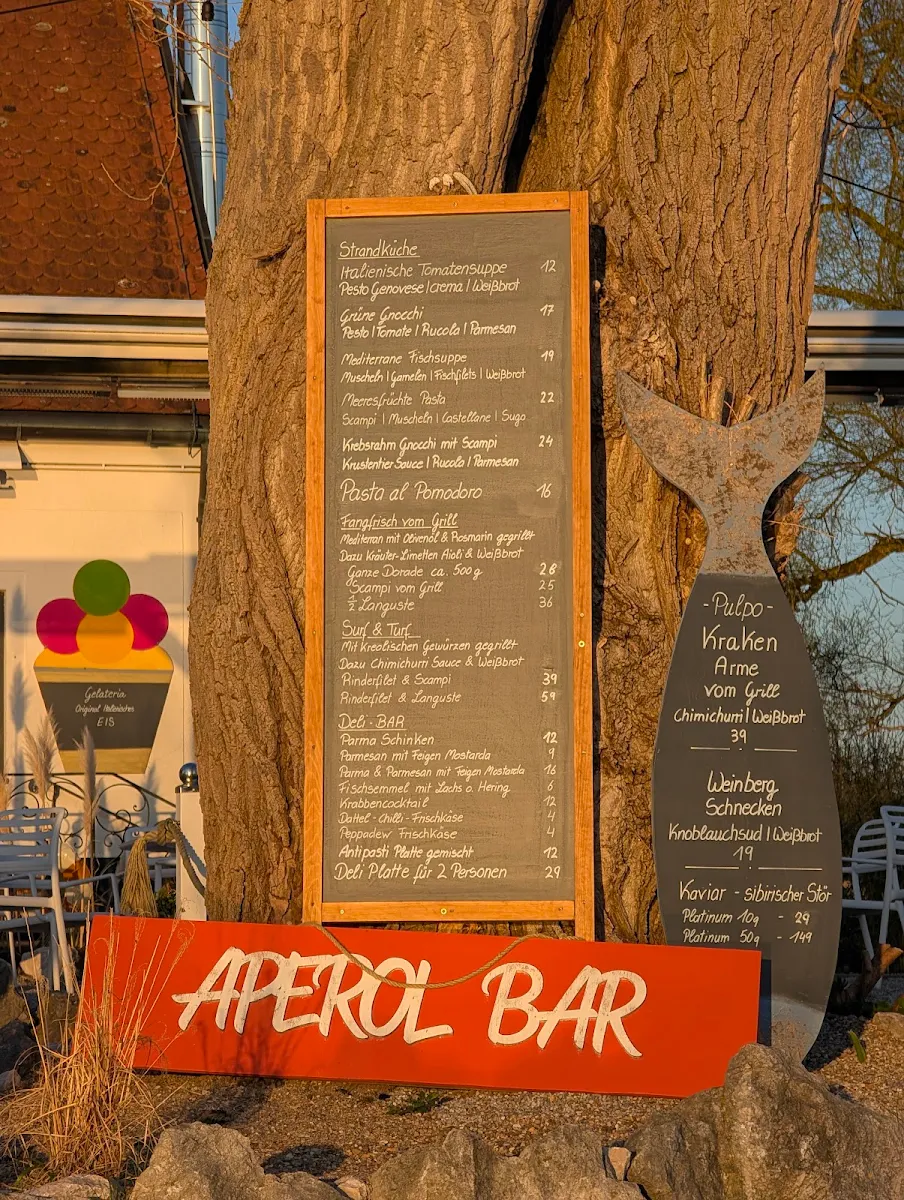 Strandküche
Italienische Tomatensuppe 12
Pesto Genovese | crema | Weißbrot
Grüne Gnocchi 17
Pesto | Tomate | Rucola | Parmesan
Mediterrane Fischsuppe 19
Muscheln | Garnelen | Fischfilets | Weißbrot
Meeresfrüchte Pasta 22
Scampi | Muscheln | Castellane | Sugo
Krebsrahm Gnocchi mit Scampi 24
Krustentier Sauce | Rucola | Parmesan
Pasta al Pomodoro 16
Fangfrisch vom Grill
Mediterran mit Olivenöl & Rosmarin gegrillt
Dazu Kräuter-Limetten Aioli & Weißbrot
Ganze Dorade ca. 500g 28
Scampi vom Grill 25
1/2 Languste 36
Surf & Turf
Mit Kreolischen Gewürzen gegrillt
Dazu Chimichurri Sauce & Weißbrot
Rinderfilet & Scampi 39
Rinderfilet & Languste 59
Deli-BAR
Parma Schinken 12
Parmesan mit Feigen Mostarda 9
Parma & Parmesan mit Feigen Mostarda 16
Fischsemmel mit Lachs o. Hering 6
Krabbencocktail 12
Dattel-Chilli-Frischkäse 4
Peppadew Frischkäse 4
Antipasti Platte gemischt 12
Deli Platte für 2 Personen 29
-Pulpo-
Kraken
Arme
vom Grill
Chimichurri | Weißbrot
39
Weinberg
Schnecken
Knoblauchsud | Weißbrot
19
Kaviar - sibirischer Stör
Platinum 10g - 29
Platinum 50g - 149
Gelateria
Original Italienisches
EIS
APEROL BAR